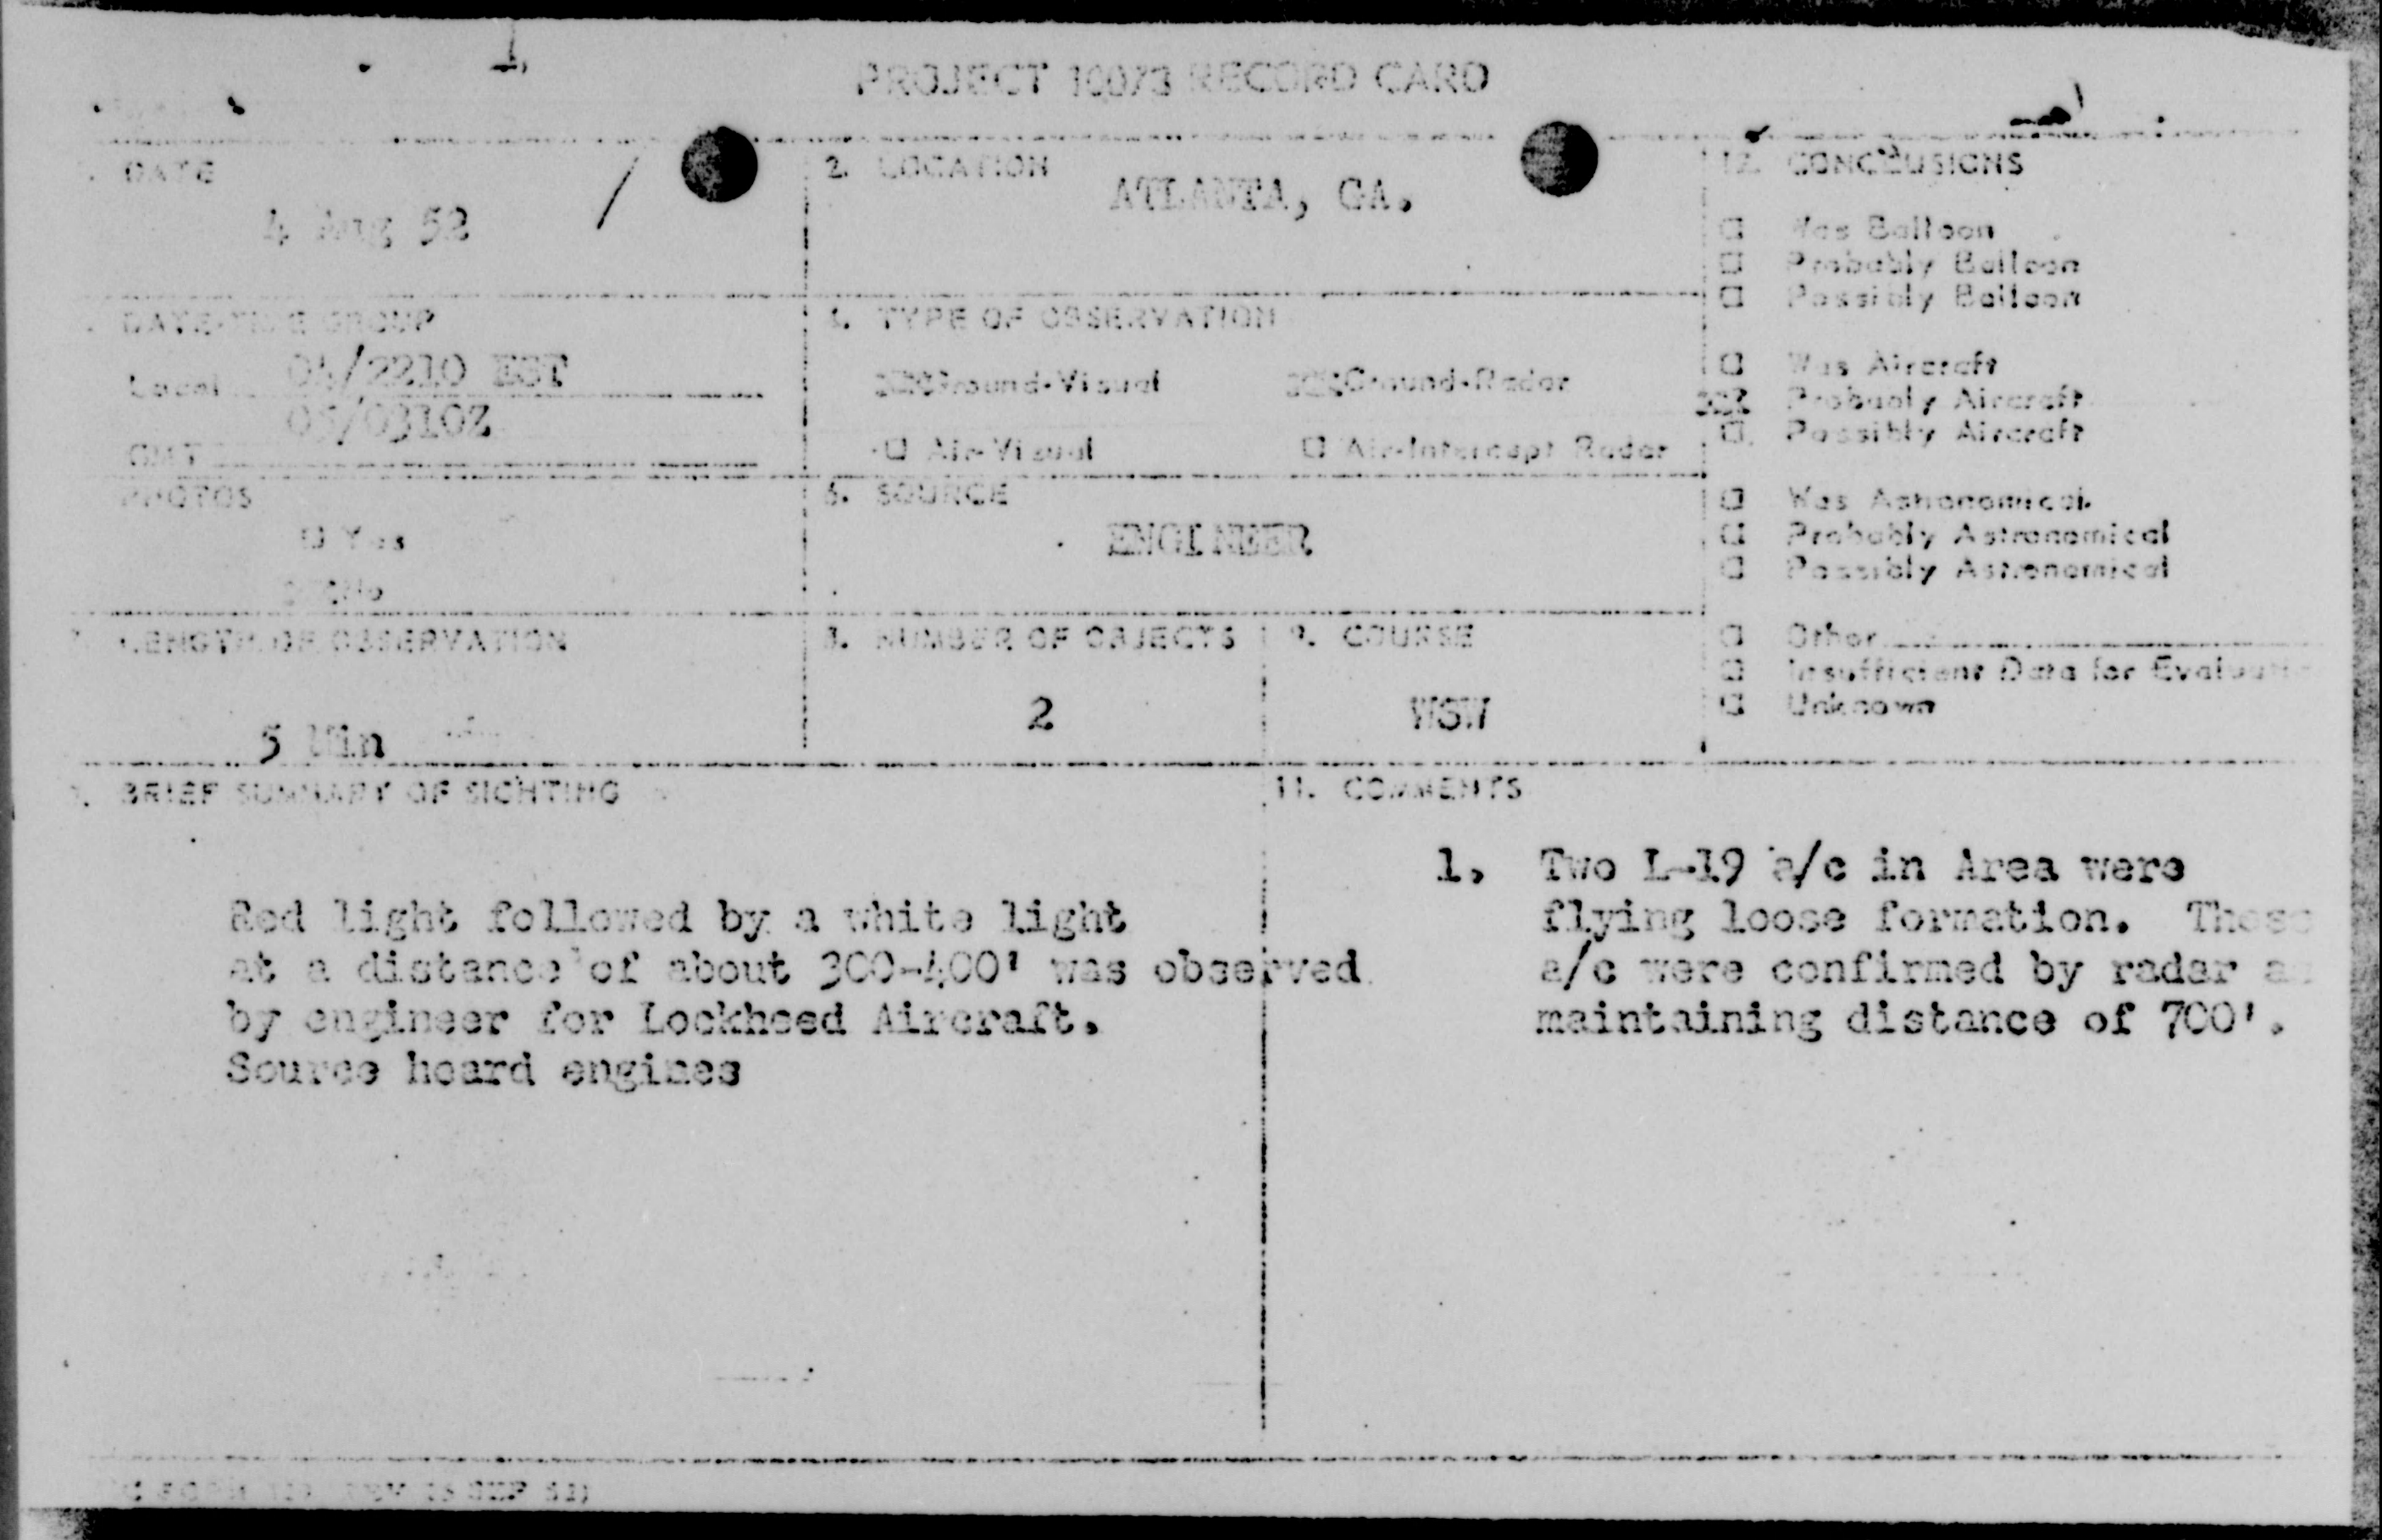 PROJECT 10073 RECORD CARD
DATE
4 Aug 52
2. LOCATION
ATLANTA, GA.
12. CONCLUSIONS
Was Balloon
Probably Balloon
Possibly Balloon
Was Aircraft
Probably Aircraft
Possibly Aircraft
Was Astronomical
Probably Astronomical
Possibly Astronomical
Other
Insufficient Data for
Unknown
DATE-TIME GROUP
Local 04/2210 EST
GMT 05/0310Z
TYPE OF OBSERVATION
Ground-Visual Ground-Radar
Air-Visual Air-Intercept Radar
PHOTOS
Yes
No
6. SOURCE
ENGINEER
LENGTH OF OBSERVATION
5 Min
8. NUMBER OF OBJECTS
2
9. COURSE
WSW
BRIEF SUMMARY OF SIGHTING
Red light followed by a white light
at a distance of about 300-400' was observed
by engineer for Lockheed Aircraft.
Source heard engines
11. COMMENTS
1. Two L-19 a/c in Area were
flying loose formation. These
a/c were confirmed by radar
maintaining distance of 700'.